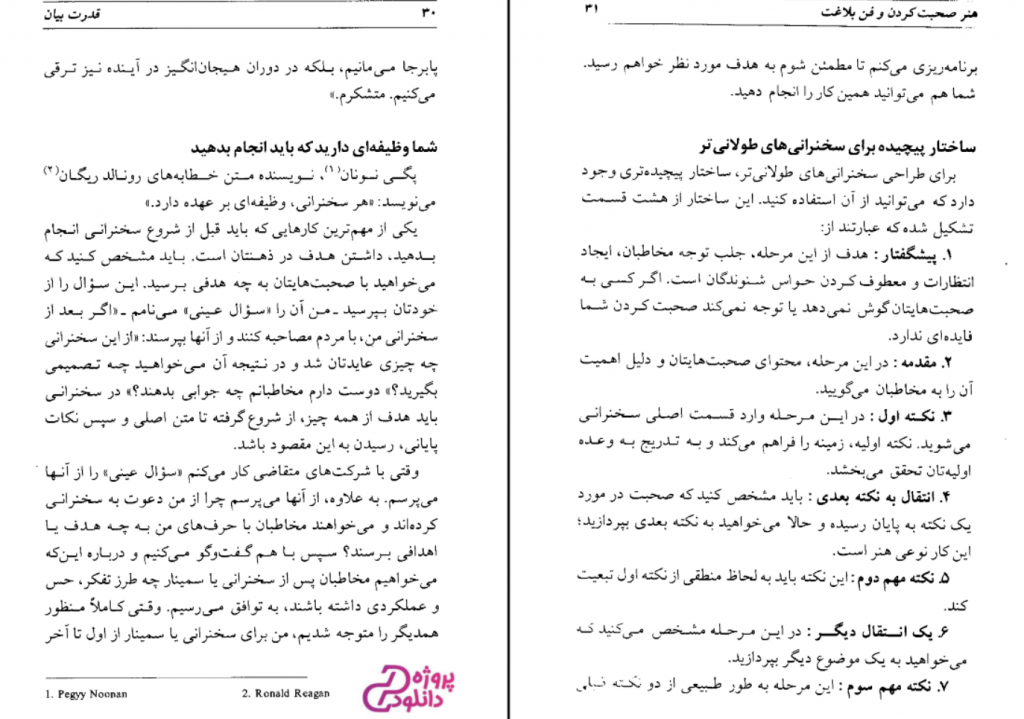 قدرت بیان
۳۰
پابرجا می‌مانیم، بلکه در دوران هیجان‌انگیز در آینده نیز ترقی
می‌کنیم. متشکرم.»
شما وظیفه‌ای دارید که باید انجام بدهید
پگی نونان(۱)، نویسنده متن خطابه‌های رونالد ریگان(۲)
می‌نویسد: «هر سخنرانی، وظیفه‌ای بر عهده دارد.»
یکی از مهم‌ترین کارهایی که باید قبل از شروع سخنرانی انجام
بدهید، داشتن هدف در ذهنتان است. باید مشخص کنید که
می‌خواهید با صحبت‌هایتان به چه هدفی برسید. این سؤال را از
خودتان بپرسید ـ من آن را «سؤال عینی» می‌نامم ـ «اگر بعد از
سخنرانی من، با مردم مصاحبه کنند و از آنها بپرسند: «از این سخنرانی
چه چیزی عایدتان شد و در نتیجه آن می‌خواهید چه تصمیمی
بگیرید؟» دوست دارم مخاطبانم چه جوابی بدهند؟» در سخنرانی
باید هدف از همه چیز، از شروع گرفته تا متن اصلی و سپس نکات
پایانی، رسیدن به این مقصود باشد.
وقتی با شرکت‌های متقاضی کار می‌کنم «سؤال عینی» را از آنها
می‌پرسم. به علاوه، از آنها می‌پرسم چرا از من دعوت به سخنرانی
کرده‌اند و می‌خواهند مخاطبان با حرف‌های من به چه هدف یا
اهدافی برسند؟ سپس با هم گفت‌وگو می‌کنیم و درباره این‌که
می‌خواهیم مخاطبان پس از سخنرانی یا سمینار چه طرز تفکر، حس
و عملکردی داشته باشند، به توافق می‌رسیم. وقتی کاملاً منظور
همدیگر را متوجه شدیم، من برای سخنرانی یا سمینار از اول تا آخر
1. Pegyy Noonan
2. Ronald Reagan
پروژه
دانلود
هنر صحبت کردن و فن بلاغت
۳۱
برنامه‌ریزی می‌کنم تا مطمئن شوم به هدف مورد نظر خواهم رسید.
شما هم می‌توانید همین کار را انجام دهید.
ساختار پیچیده برای سخنرانی‌های طولانی‌تر
برای طراحی سخنرانی‌های طولانی‌تر، ساختار پیچیده‌تری وجود
دارد که می‌توانید از آن استفاده کنید. این ساختار از هشت قسمت
تشکیل شده که عبارتند از:
۱. پیشگفتار: هدف از این مرحله، جلب توجه مخاطبان، ایجاد
انتظارات و معطوف کردن حواس شنوندگان است. اگر کسی به
صحبت‌هایتان گوش نمی‌دهد یا توجه نمی‌کند صحبت کردن شما
فایده‌ای ندارد.
۲. مقدمه: در این مرحله، محتوای صحبت‌هایتان و دلیل اهمیت
آن را به مخاطبان می‌گویید.
۳. نکته اول: در این مرحله وارد قسمت اصلی سخنرانی
می‌شوید. نکته اولیه، زمینه را فراهم می‌کند و به تدریج به وعده
اولیه‌تان تحقق می‌بخشد.
۴. انتقال به نکته بعدی: باید مشخص کنید که صحبت در مورد
یک نکته به پایان رسیده و حالا می‌خواهید به نکته بعدی بپردازید؛
این کار نوعی هنر است.
۵. نکته مهم دوم: این نکته باید به لحاظ منطقی از نکته اول تبعیت
کند.
۶. یک انتقال دیگر: در این مرحله مشخص می‌کنید که
می‌خواهید به یک موضوع دیگر بپردازید.
۷. نکته مهم سوم: این مرحله به طور طبیعی از دو نکته قبلی